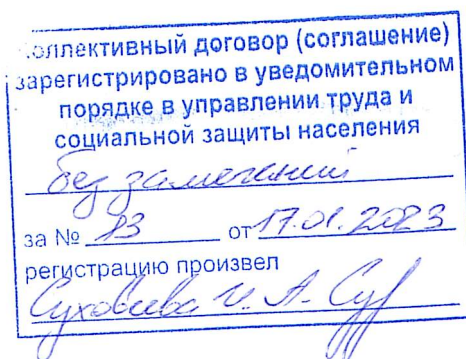 Коллективный договор (соглашение)
зарегистрировано в уведомительном
порядке в управлении труда и
социальной защиты населения
без замечаний
за № 83 от 17.01.2023
регистрацию произвел
И. А.